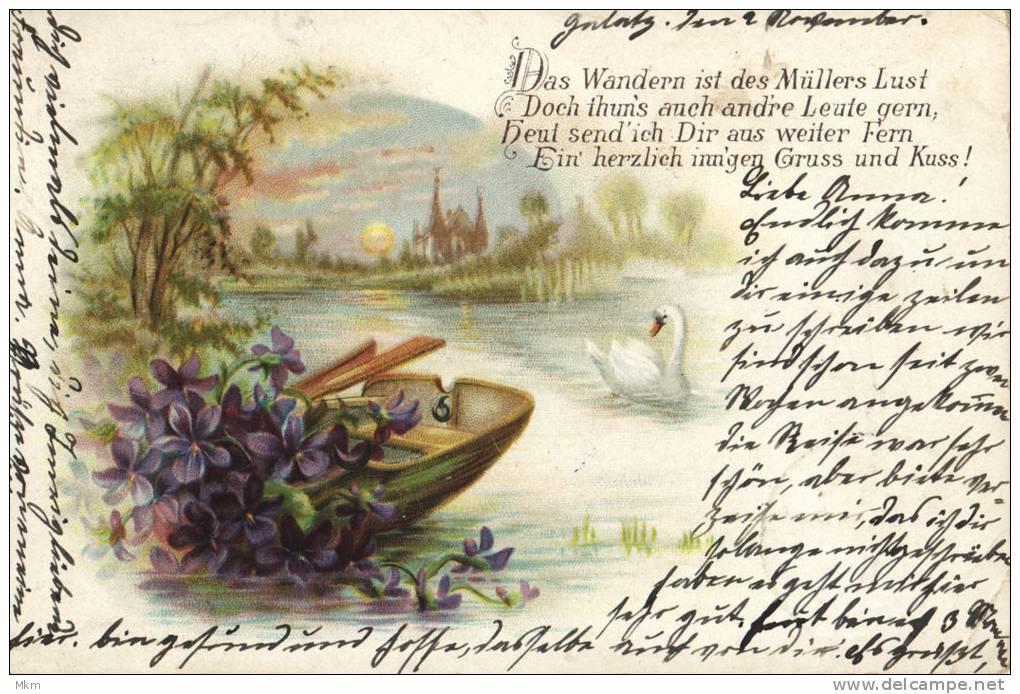 Galatz. den 2 November.
Das Wandern ist des Müllers Lust
Doch thun's auch and're Leute gern,
Heut send' ich Dir aus weiter Fern
Ein' herzlich inn'gen Gruss und Kuss!
Liebe Anna!
Endlich komme
ich auch dazu, um
dir einige zeilen
zu schreiben wir
sind schon seit zwei
Wochen angekomm
die Reise war sehr
schön, aber bitte ver
zeihe mir, das ich dir
solange nicht geschrieben
haben es geht mir hier
sehr gut. bin 3
hier. bin gesund und hoffe, dasselbe auch von dir. Es grüßt,
Dich vielmals
Mkm
www.delcampe.net